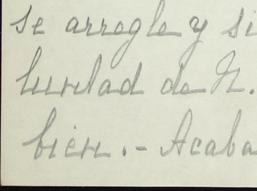 se arregle y si
luntad de N.
bien.- Acaba